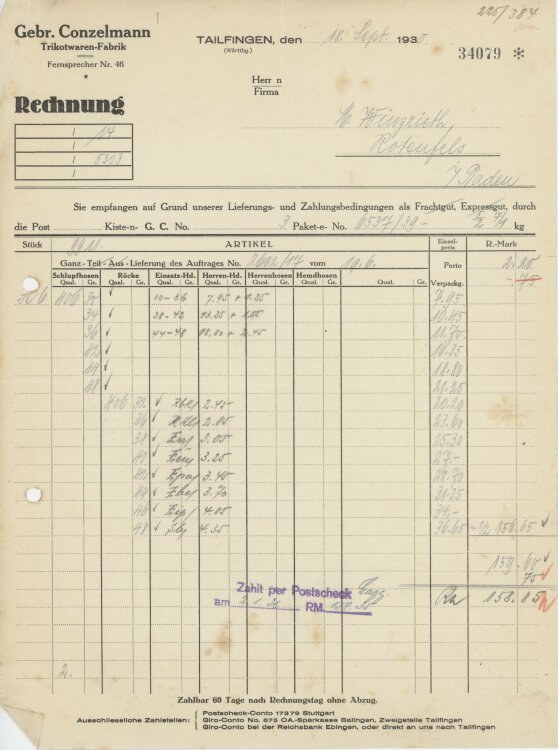 225/384
Gebr. Conzelmann
Trikotwaren-Fabrik
Fernsprecher Nr. 46
*
TAILFINGEN, den 18. Sept. 1930
(Württbg.)
34079 *
Herr n
Firma
Rechnung
14
5303
Rotenfels
i/ Baden
Sie empfangen auf Grund unserer Lieferungs- und Zahlungsbedingungen als Frachtgut, Expressgut, durch
die Post Kiste-n G. C. No. 3 Paket-e- No. 6537/39 - kg
Stück ARTIKEL Einzel-preis R.-Mark
Ganz - Teil - Aus - Lieferung des Auftrages No. 2602/17 vom 19.6. Porto 2.20
Schlupfhosen Röcke Einsatz-Hd. Herren-Hd. Herrenhosen Hemdhosen Verpackg. -75
Qual. Gr. Qual. Gr. Qual. Gr. Qual. Gr. Qual. Gr. Qual. Gr. Qual. Gr.
406 30-36 7.95 + 1.25 7.95
34 38-42 13.25 + 1.55 10.45
36 44-48 18.80 + 2.45 11.70
42
44 18.80
48 21.20
406 32 2.45 20.20
36 2.85 23.60
38 3.05 25.30
40 3.25 27.-
42 3.45 29.70
44 3.70 31.35
46 4.05 34.-
48 4.35 36.65 = 1/2 156.65
159.60
75
Zahlt per Postscheck
am RM.
158.85
2.
Zahlbar 60 Tage nach Rechnungstag ohne Abzug.
Ausschliessliche Zahlstellen: Postscheck-Conto 17379 Stuttgart
Giro-Conto No. 675 OA.-Sparkasse Balingen, Zweigstelle Tailfingen
Giro-Conto bei der Reichsbank Ebingen, oder direkt an uns nach Tailfingen